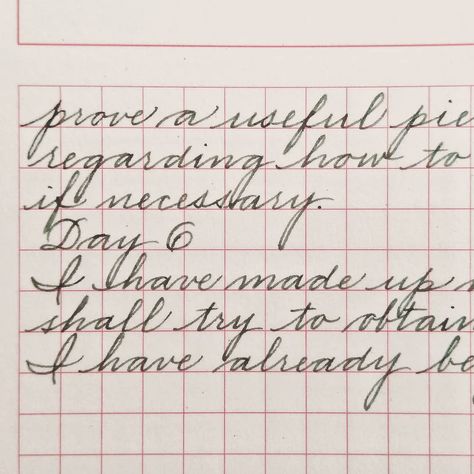 prove a useful pie
regarding how to
if necessary.
Day 6
I have made up
shall try to obtain
I have already be